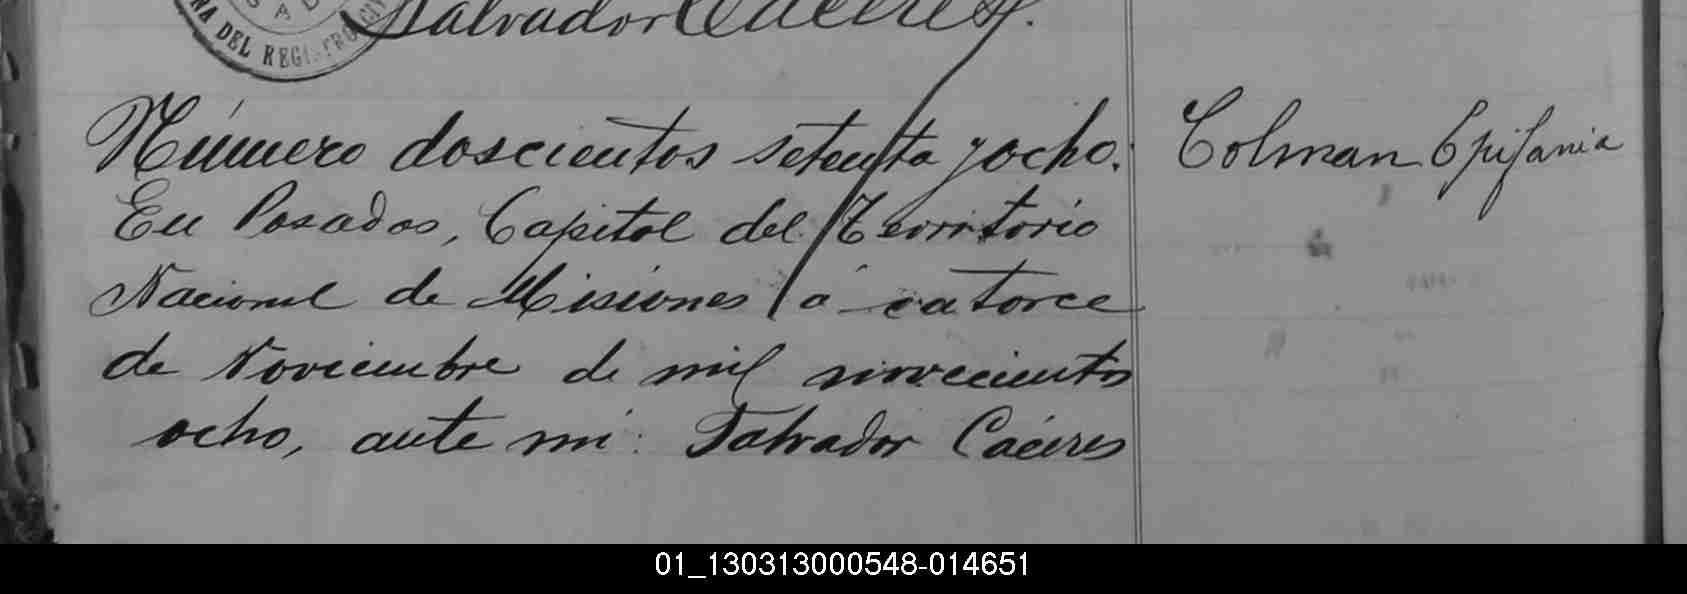 Salvador Cáceres.
NA DEL REGISTRO
Número doscientos setenta y ocho.
Colman Epifania
En Posadas, Capital del Territorio
Nacional de Misiones á catorce
de Noviembre de mil novecientos
ocho, ante mi: Salvador Cáceres
01_130313000548-014651